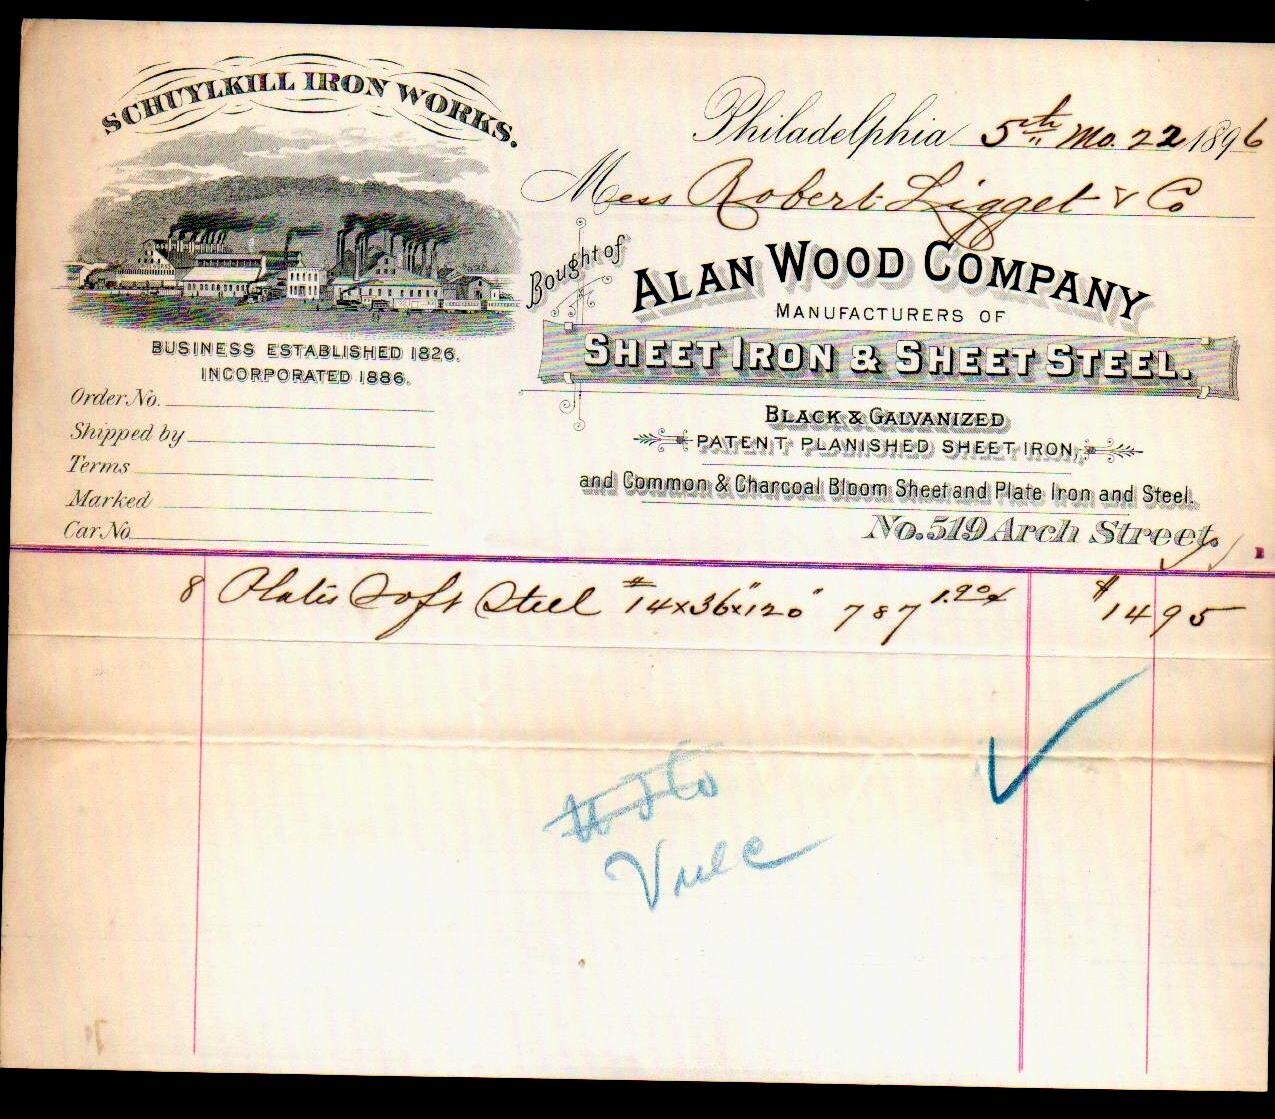 SCHUYLKILL IRON WORKS.
BUSINESS ESTABLISHED 1826.
INCORPORATED 1886.
Order No.
Shipped by
Terms
Marked
Car No.
Philadelphia 5th Mo. 22 1896
Mess Robert Ligget & Co
Bought of
ALAN WOOD COMPANY
MANUFACTURERS OF
SHEET IRON & SHEET STEEL.
BLACK & GALVANIZED
PATENT PLANISHED SHEET IRON,
and Common & Charcoal Bloom Sheet and Plate Iron and Steel.
No. 519 Arch Street.
8 Plates Soft Steel # 14 x 36" x 120" 787 1.90¢ $ 14 95